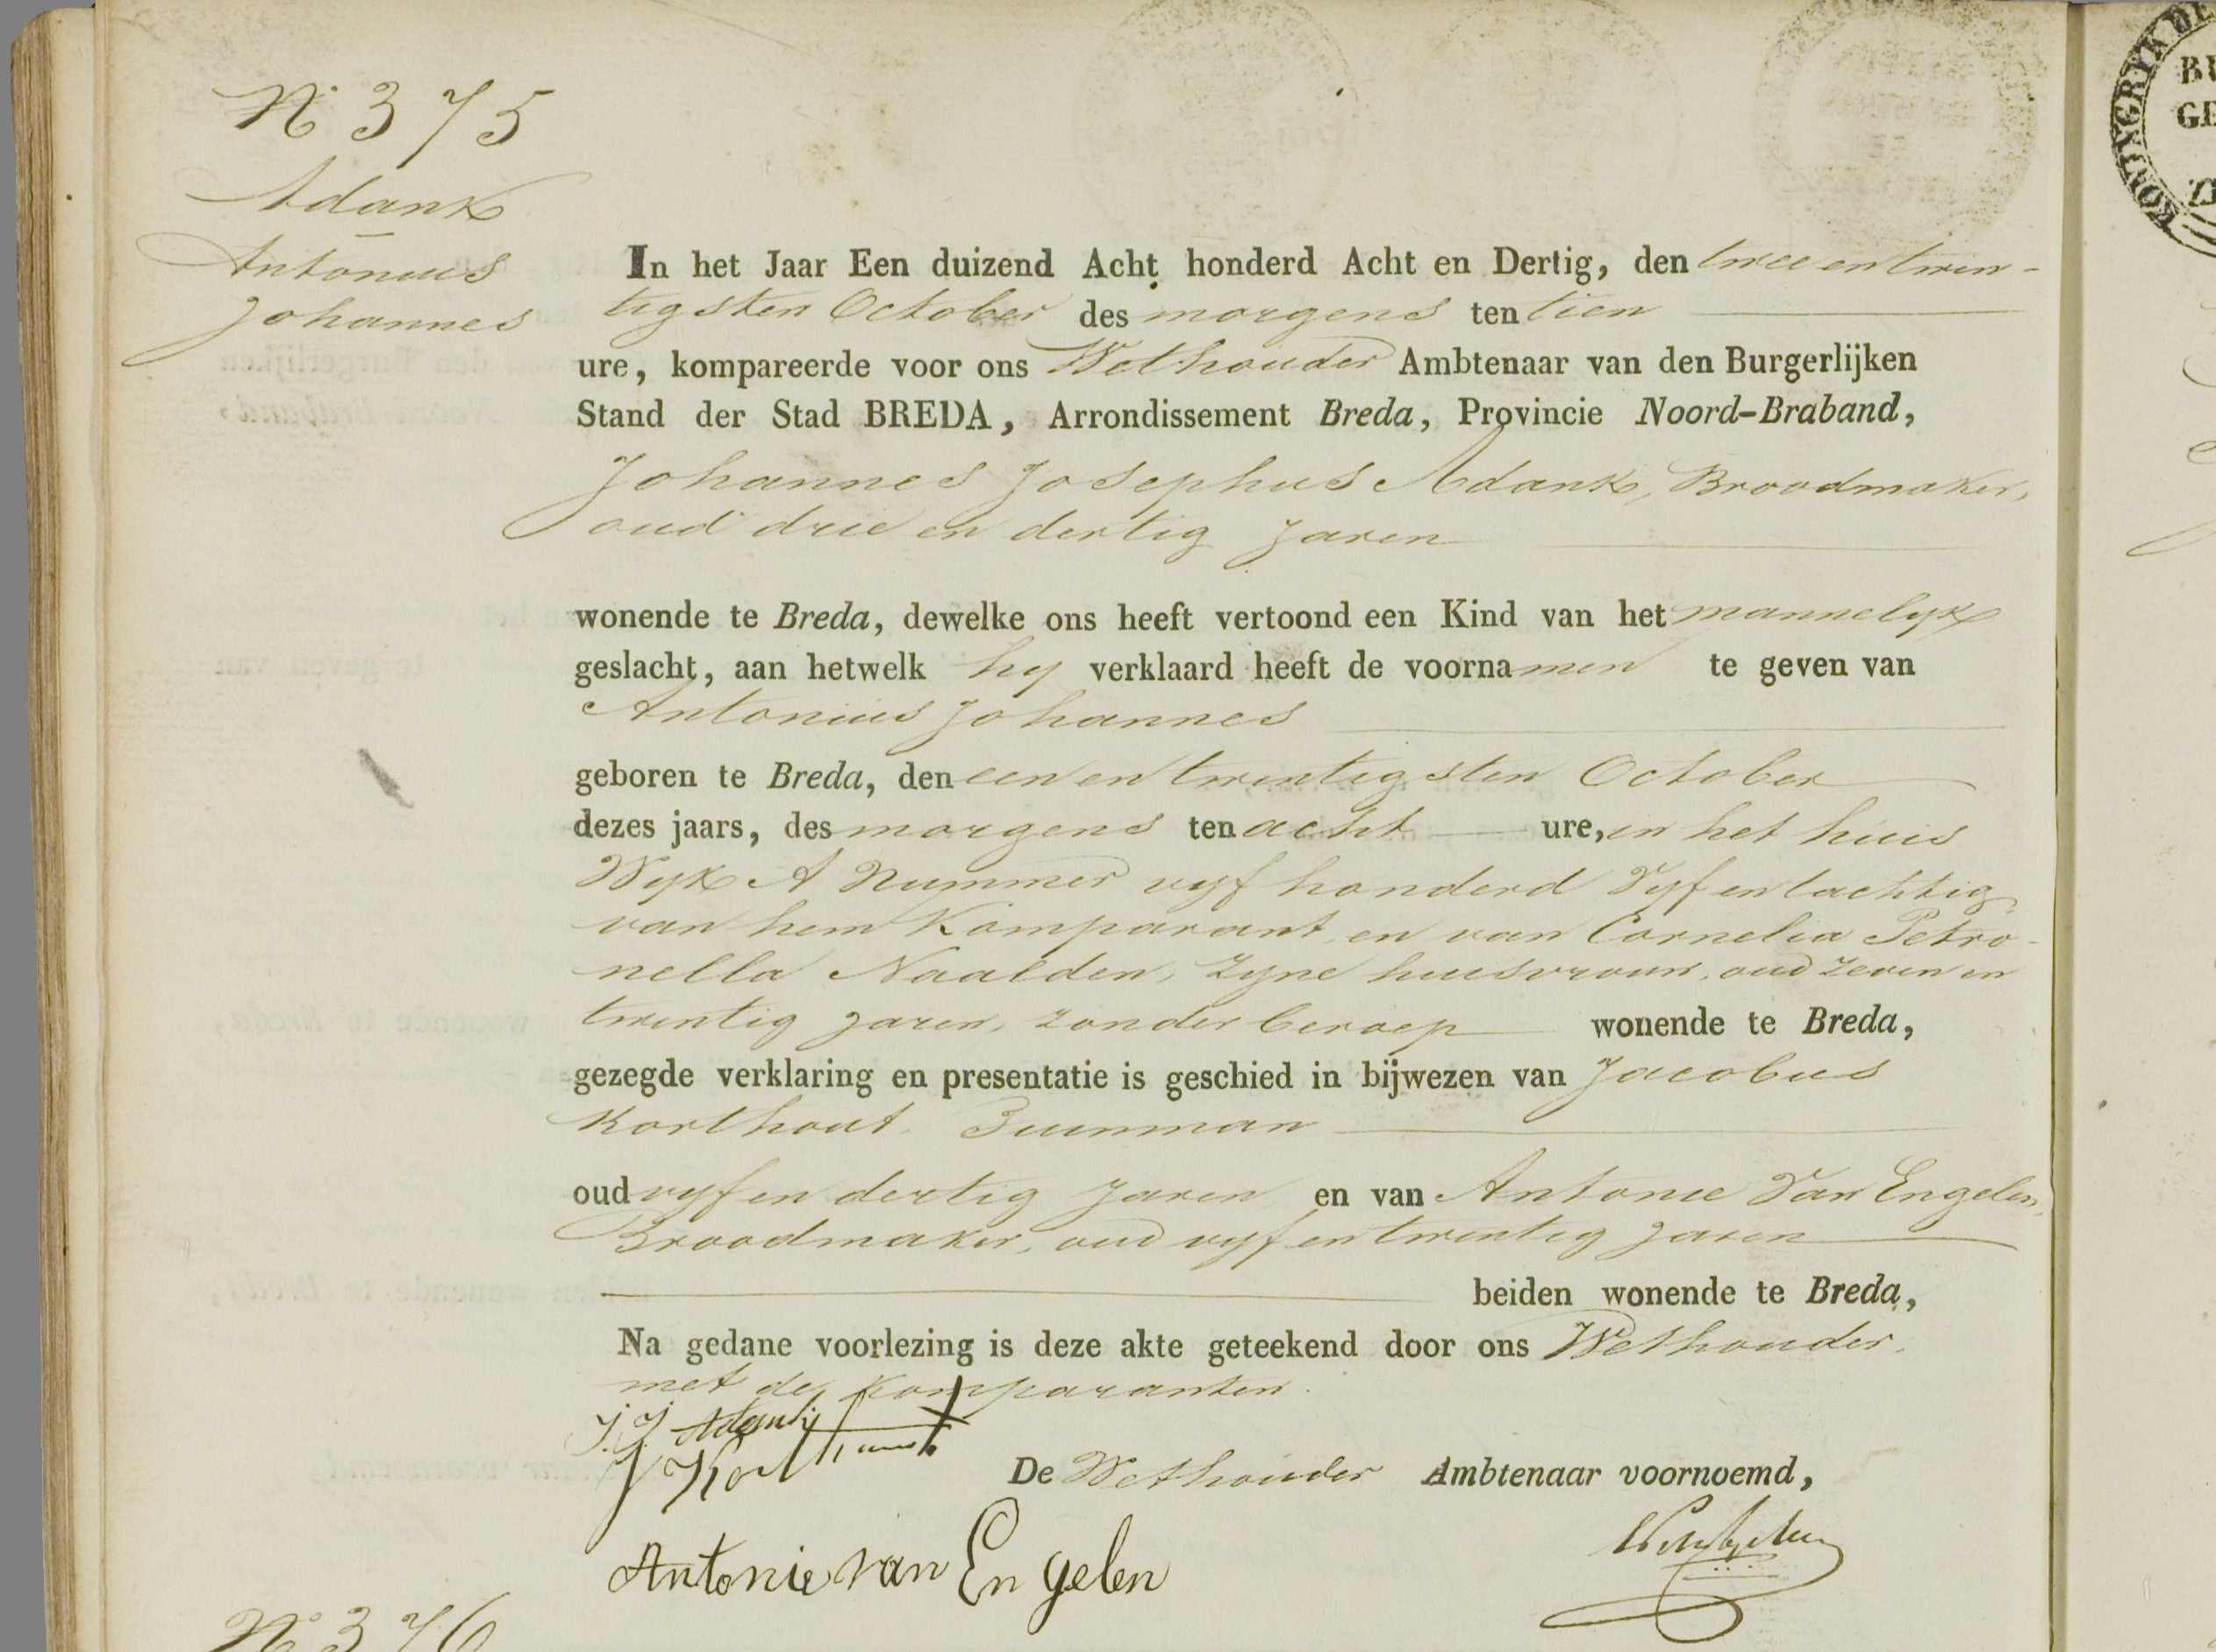 N° 375
Adank
Antonius
Johannes
In het Jaar Een duizend Acht honderd Acht en Dertig, den twee en twin-
tigsten October des morgens ten tien
ure, kompareerde voor ons Wethouder Ambtenaar van den Burgerlijken
Stand der Stad BREDA, Arrondissement Breda, Provincie Noord-Braband,
Johannes Josephus Adank, Broodmaker,
oud drie en dertig Jaren
wonende te Breda, dewelke ons heeft vertoond een Kind van het mannelyk
geslacht, aan hetwelk hy verklaard heeft de voornamen te geven van
Antonius Johannes
geboren te Breda, den een en twintigsten October
dezes jaars, des morgens ten acht ure, in het huis
Wyk A Nummer vyf honderd Vyf en tachtig
van hem Komparant en van Cornelia Petro-
nella Naalden, zyne huisvrouw, oud zeven en
twintig jaren, zonder beroep wonende te Breda,
gezegde verklaring en presentatie is geschied in bijwezen van Jacobus
Korthout
oud vyf en dertig Jaren en van Antonie Van Engelen,
Broodmaker, oud vyf en twintig Jaren
beiden wonende te Breda,
Na gedane voorlezing is deze akte geteekend door ons Wethouder,
met de Komparanten.
J. J. Adank
J Korthout
De Wethouder Ambtenaar voornoemd,
Antonie van Engelen
N° 376
KONINGRYK DE
BU
GE